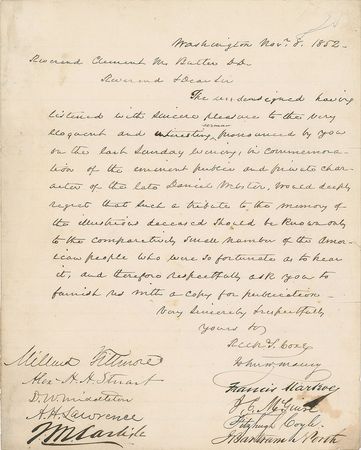 Washington Nov. 8. 1852.
Reverend Clement M. Butler D.D.
Reverend & Dear Sir
The undersigned having
listened with sincere pleasure to the very
sermon
eloquent and interesting, pronounced by you
on the last Sunday evening, in commemora-
tion of the eminent public and private char-
acter of the late Daniel Webster, would deeply
regret that such a tribute to the memory of
the illustrious deceased should be known only
to the comparatively small number of the Amer-
ican people who were so fortunate as to hear
it, and therefore respectfully ask you to
furnish us with a copy for publication.
Very sincerely & respectfully
Yours &c
Rich. S. Coxe
John W. Maury
Millard Fillmore
Alex. H. H. Stuart
D. W. Middleton
A. H. Lawrence
Francis Markoe
J. C. McGuire
Fitzhugh Coyle